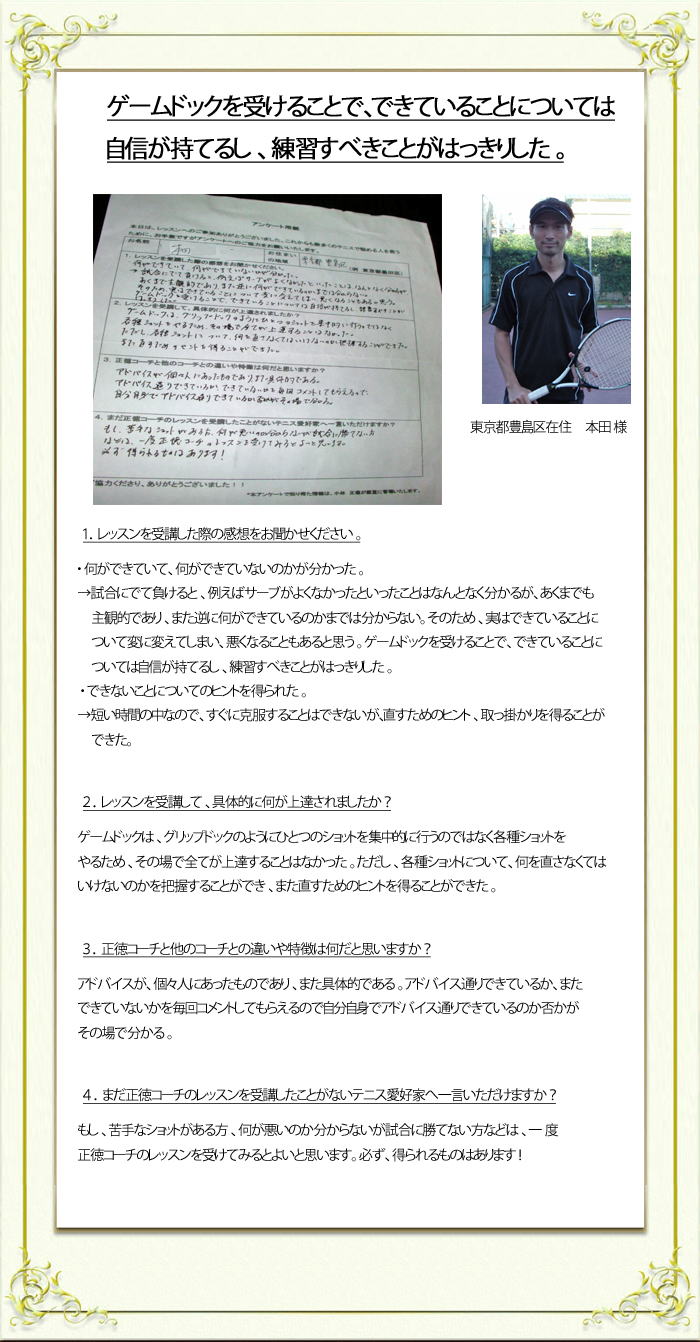 ゲームドックを受けることで、できていることについては
自信が持てるし、練習すべきことがはっきりした。
アンケート用紙
本日は、レッスンへのご参加ありがとうございました。これからも数多くのテニスで悩める人を救う
ために、お手数ですがアンケートへのご協力をお願いいたします。
お名前
お住まいの地域
東京都 豊島区
(例 東京都豊島区)
1. レッスンを受講した際の感想をお聞かせください。
何ができていて、何ができていないのかが分かった。
2. レッスンを受講して、具体的に何が上達されましたか?
3. 正徳コーチと他のコーチとの違いや特徴は何だと思いますか?
アドバイスが個々人にあったものであり、また具体的である。
4. まだ正徳コーチのレッスンを受講したことがないテニス愛好家へ一言いただけますか?
必ず得られるものはあります!
協力くださり、ありがとうございました!!
東京都豊島区在住 本田様
1. レッスンを受講した際の感想をお聞かせください。
・何ができていて、何ができていないのかが分かった。
→試合にでて負けると、例えばサーブがよくなかったといったことはなんとなく分かるが、あくまでも
主観的であり、また逆に何ができているのかまでは分からない。そのため、実はできていることに
ついて変に変えてしまい、悪くなることもあると思う。ゲームドックを受けることで、できていることに
ついては自信が持てるし、練習すべきことがはっきりした。
・できないことについてのヒントを得られた。
→短い時間の中なので、すぐに克服することはできないが、直すためのヒント、取っ掛かりを得ることが
できた。
2. レッスンを受講して、具体的に何が上達されましたか?
ゲームドックは、グリップドックのようにひとつのショットを集中的に行うのではなく各種ショットを
やるため、その場で全てが上達することはなかった。ただし、各種ショットについて、何を直さなくては
いけないのかを把握することができ、また直すためのヒントを得ることができた。
3. 正徳コーチと他のコーチとの違いや特徴は何だと思いますか?
アドバイスが、個々人にあったものであり、また具体的である。アドバイス通りできているか、また
できていないかを毎回コメントしてもらえるので自分自身でアドバイス通りできているのか否かが
その場で分かる。
4. まだ正徳コーチのレッスンを受講したことがないテニス愛好家へ一言いただけますか?
もし、苦手なショットがある方、何が悪いのか分からないが試合に勝てない方などは、一度
正徳コーチのレッスンを受けてみるとよいと思います。必ず、得られるものはあります!